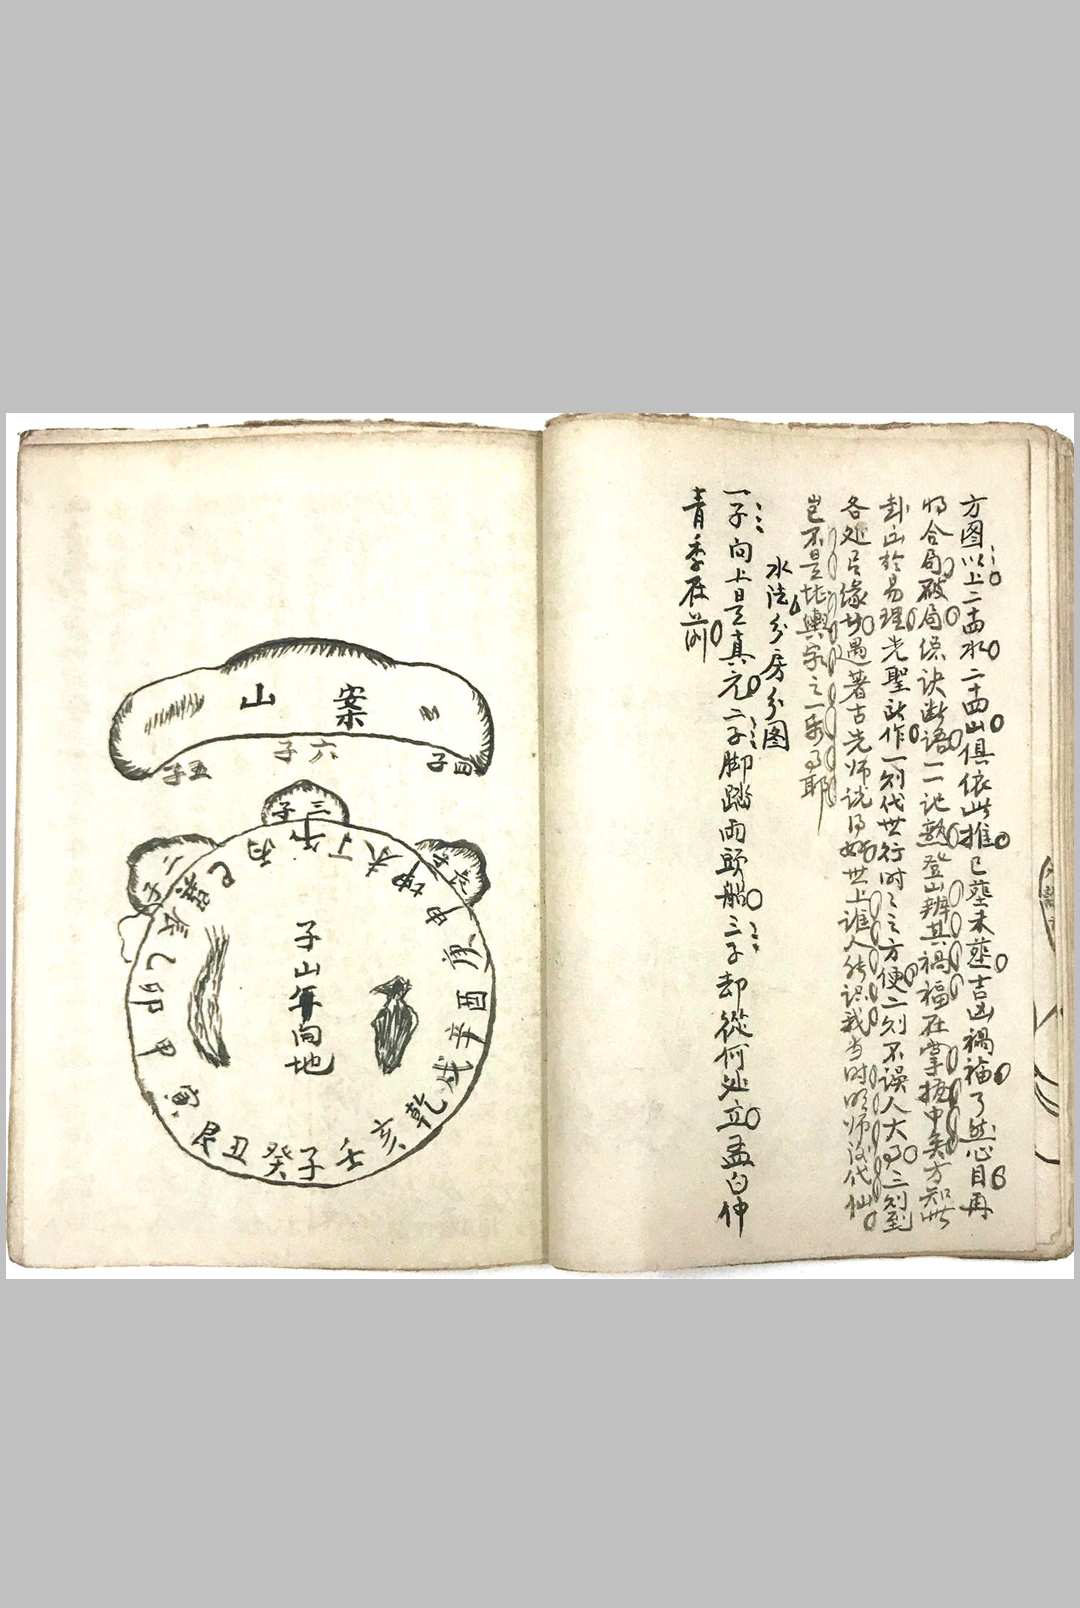 方图以上二十四水二十四山俱依此推已塟未塟吉凶禍福了然心目再
将合局破局傌诀断语一一记熟登山辨其禍福在掌握中矣方知此
卦出於易理先聖所作一则代世行时之方便二则不误人大事三则到
各处有缘好遇著古先师说得好世上谁人能识我当时明师後代仙
豈不是地輿家之一乐事耶
水法分房分图
一子向上是真元二子脚踏兩頭船三子却從何处立孟白仲
青季在前
案山
四子
六子
五子
三子
二子
子山午向地
午丁未坤申庚酉辛戌乾亥壬子癸丑艮寅甲卯乙辰巽巳丙